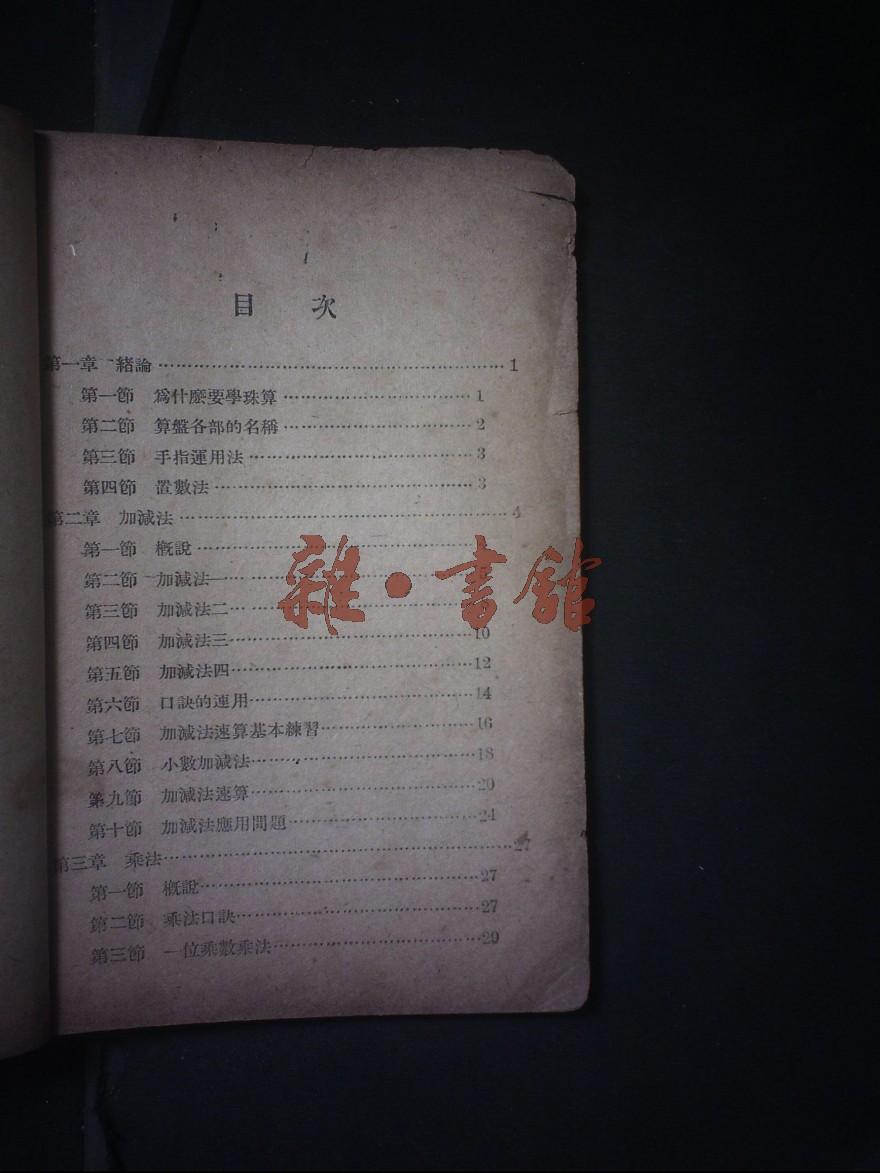 目 次
第一章 緒論……1
第一節 爲什麽要學珠算……1
第二節 算盤各部的名稱……2
第三節 手指運用法……3
第四節 置數法……3
第二章 加減法……4
第一節 概說……
第二節 加減法一……
第三節 加減法二……
雜·書館
第四節 加減法三……10
第五節 加減法四……12
第六節 口訣的運用……14
第七節 加減法速算基本練習……16
第八節 小數加減法……18
第九節 加減法速算……20
第十節 加減法應用問題……24
第三章 乘法……27
第一節 概說……27
第二節 乘法口訣……27
第三節 一位乘數乘法……29